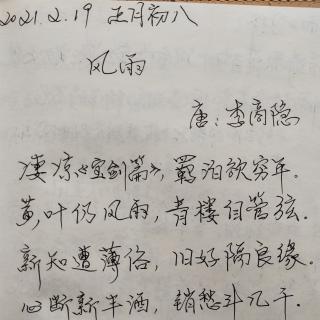 2021.2.19 正月初八
风雨
唐:李商隐
凄凉《宝剑篇》,羁泊欲穷年。
黄叶仍风雨,青楼自管弦。
新知遭薄俗,旧好隔良缘。
心断新丰酒,销愁斗几千。